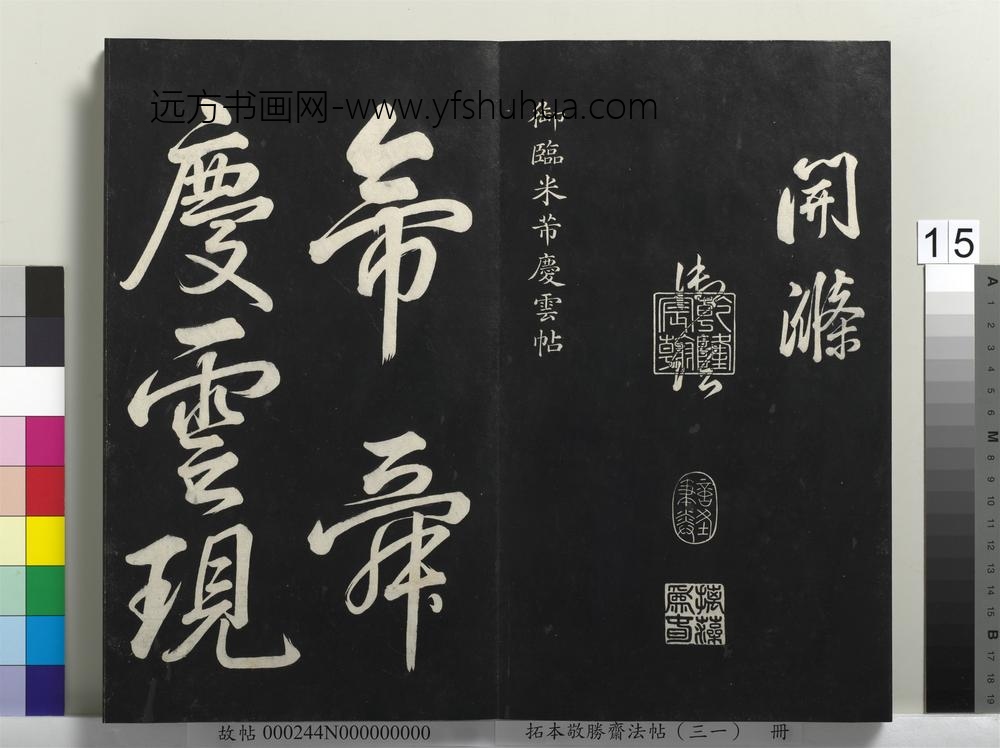 远方书画网-www.yfshuhua.com
開滌
乾隆宸翰
摛藻為春
御臨米芾慶雲帖
帝舜
慶雲現
15
故帖 000244N000000000
拓本敬勝齋法帖（三一） 冊
A
1
2
3
4
5
6
M
8
9
10
11
12
13
14
15
B
17
18
19